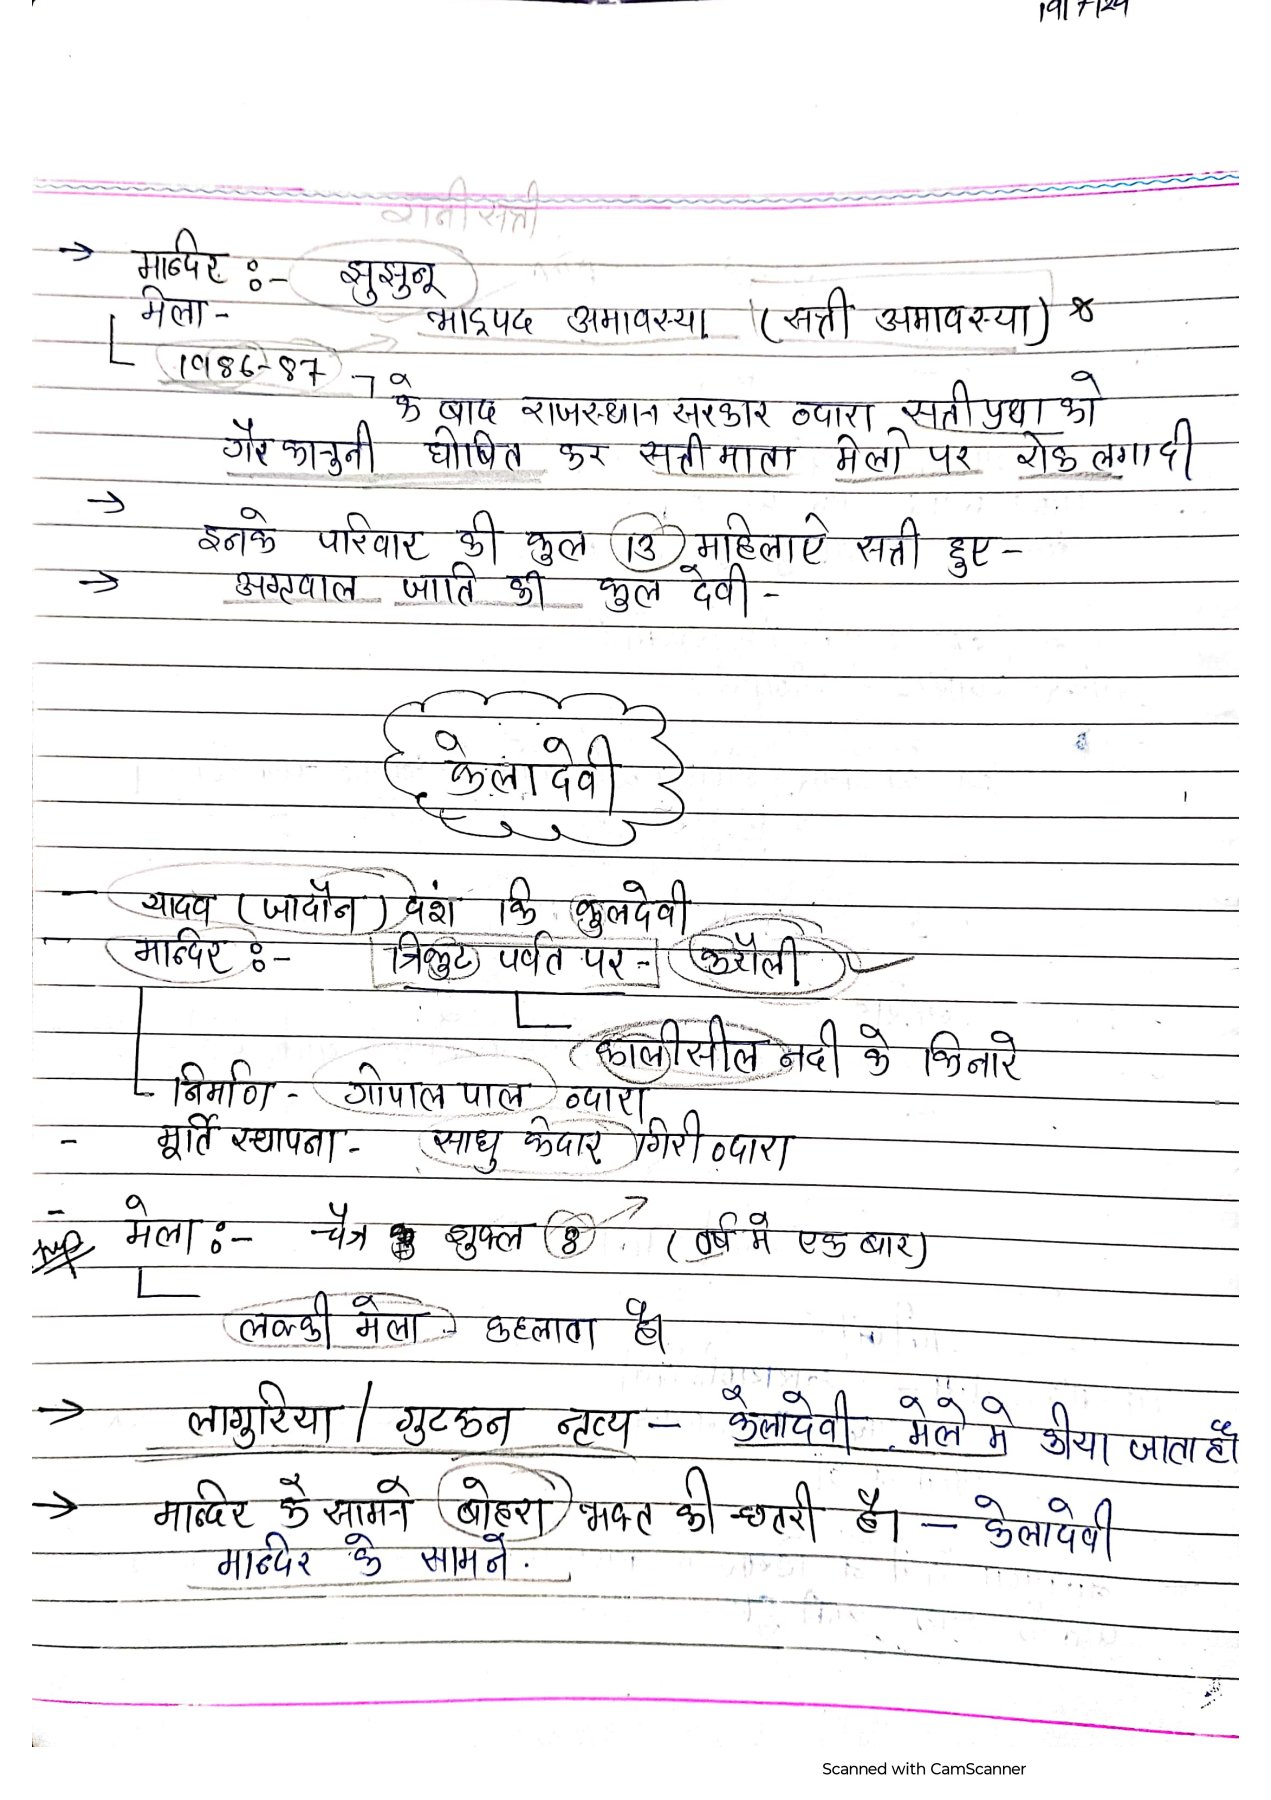 19/7/24
रानी सती
→ मन्दिर :- झुझुनू
मेला - भाद्रपद अमावस्या (सती अमावस्या) *
1986-87 के बाद राजस्थान सरकार व्दारा सतीप्रथा को
गैर कानुनी घोषित कर सतीमाता मेलो पर रोक लगा दी
→ इनके परिवार की कुल 13 महिलाऐ सती हुए -
→ अग्रवाल जाति की कुल देवी -
केला देवी
- यादव (जादौन) वंश कि कुलदेवी
- मन्दिर :- त्रिकुट पर्वत पर - करौली
कालीसील नदी के किनारे
निर्माण - गोपाल पाल व्दारा
- मूर्ति स्थापना - साधु केदार गिरी व्दारा
- मेला :- चैत्र शुक्ल 8 (वर्ष मे एक बार)
लक्की मेला - कहलाता है।
→ लागुरिया / गुटकन नृत्य - कैलादेवी मेले मे कीया जाता है।
→ मन्दिर के सामने बोहरा भक्त की छतरी है। - केलादेवी
मन्दिर के सामने.
Scanned with CamScanner